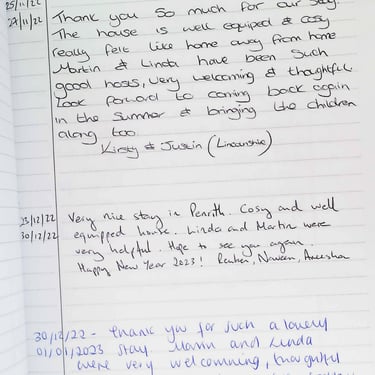 25/11/22 Thank you so much for our stay.
27/11/22 The house is well equiped & cosy
really felt like home away from home
Martin & Linda have been such
good hosts, very welcoming & thoughtful
Look forward to coming back again
in the summer & bringing the children
along too.
Kirsty & Justin (Lincolnshire)
23/12/22 Very nice stay in Penrith. Cosy and well
30/12/22 equipped house. Linda and Martin were
very helpful. Hope to see you again.
Happy New Year 2023! Reuben, Naveen,
30/12/22 - Thank you for such a lovely
01/01/2023 stay Marvin and Linda
were very welcomning, thoughtful